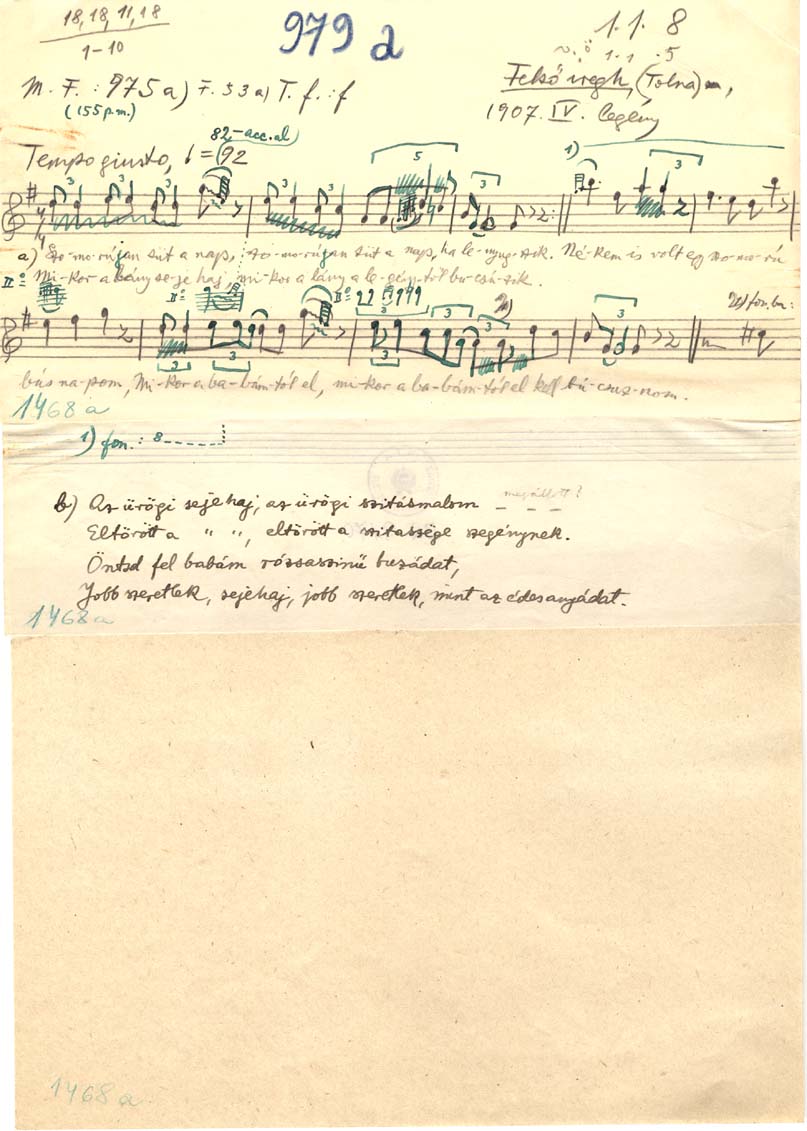 18, 18, 11, 18
1-10
979 a
1. 1. 8
1. 1. 5
M. F. : 975 a) F. 53 a) T. f. : f
(155 p.m.)
Felső iregh, (Tolna) m,
1907. IV. legény
82-acc. al
Tempo giusto, ♩ = 92
5
1)
3 3 3 3 3 3
a) Szo-mo-rújan süt a nap, szo-mo-rújan süt a nap, ha le-nyug-szik. Né-kem is volt egy szo-mo-rú
IIº Mi-kor a lány se-je haj, mi-kor a lány a le-gény-től bu-csú-zik.
IIº IIº 2) 2) fon. ba:
3 3 3 3
3 3
bús na-pom, Mi-kor a ba-bám-tól el, mi-kor a ba-bám-tól el kell bú-csuz-nom.
1468 a
1) fon. : 8
b) Az ürögi sejehaj, az ürögi szitásmalom – – – megállott?
Eltörött a " ", eltörött a szitassége szegénynek.
Öntsd fel babám rózsaszinű buzádat,
Jobb szeretlek, sejehaj, jobb szeretlek, mint az édesanyádat.
1468 a
1468 a